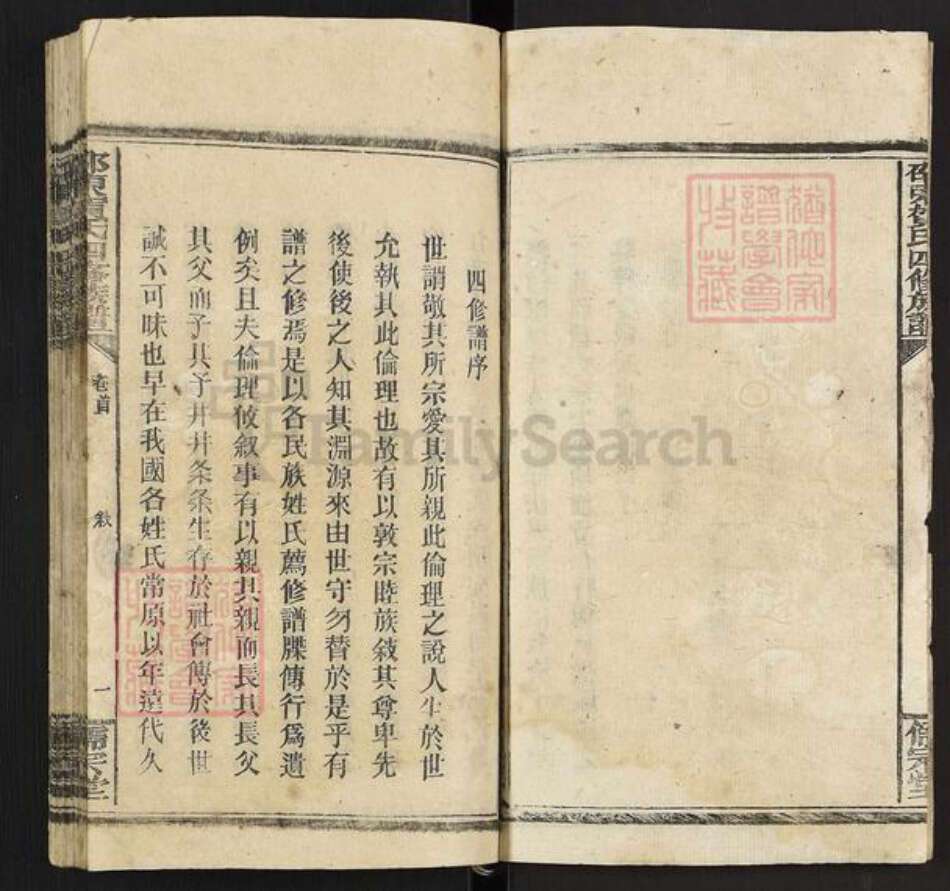 四修族譜
四修譜序
世謂敬其所宗愛其所親此倫理之說人生於世
允執其此倫理也故有以敦宗睦族敍其尊卑先
後使後之人知其淵源來由世守勿替於是乎有
譜之修焉是以各民族姓氏薦修譜牒傳行爲遺
例矣且夫倫理攸叙事有以親其親而長其長父
其父而子其子井井条条生存於社會傳於後世
誠不可昧也早在我國各姓氏常原以年遠代久
四修族譜
卷首
敘
一
儒宗堂
FamilySearch
譜學會
收藏